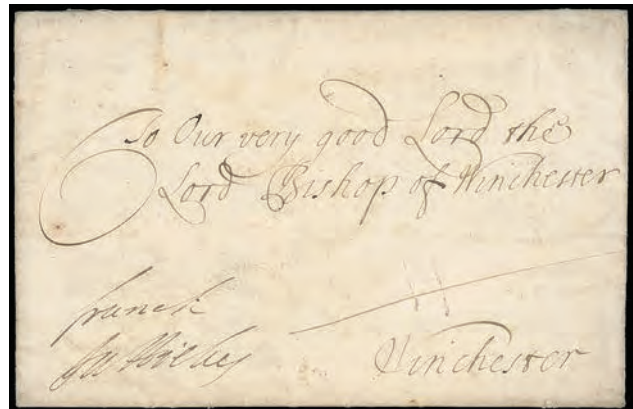 To Our very good Lord the
Lord Bishop of Winchester
franck
Winchester